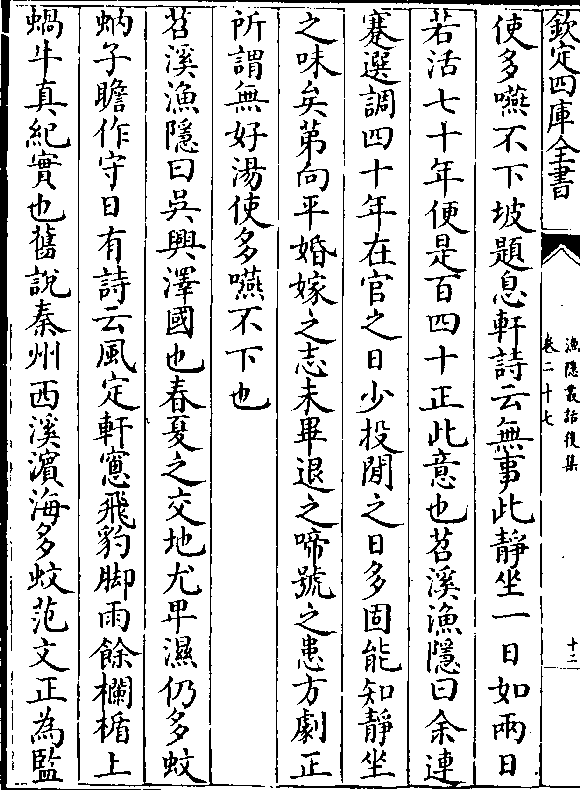 欽定四庫全書
漁隱叢話後集
卷二十七
十二
使多嚥不下坡題息軒詩云無事此靜坐一日如兩日
若活七十年便是百四十正此意也苕溪漁隱曰余連
蹇選調四十年在官之日少投閒之日多固能知靜坐
之味矣第向平婚嫁之志未畢退之啼號之患方劇正
所謂無好湯使多嚥不下也
苕溪漁隱曰吳興澤國也春夏之交地尤卑濕仍多蚊
蚋子瞻作守日有詩云風定軒窓飛豹脚雨餘欄楯上
蝸牛真紀實也舊說秦州西溪濱海多蚊范文正為監